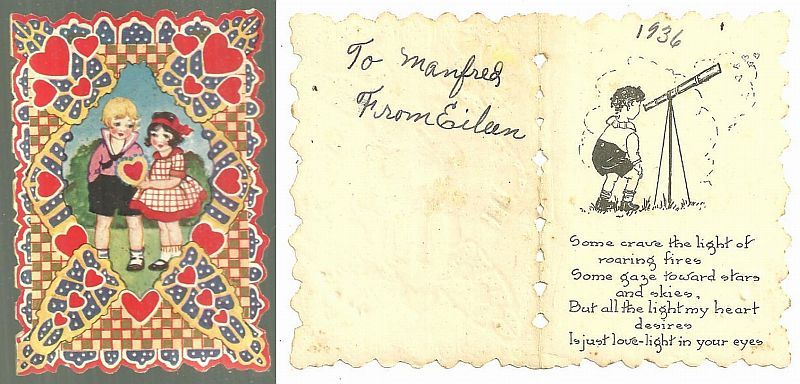 To Manfred
From Eileen
1936
Some crave the light of
roaring fires
Some gaze toward stars
and skies,
But all the light my heart
desires
Is just love-light in your eyes